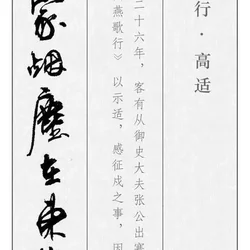 行·高适
二十六年，客有从御史大夫张公出塞
燕歌行》以示适，感征戍之事，因
家烟塵在東